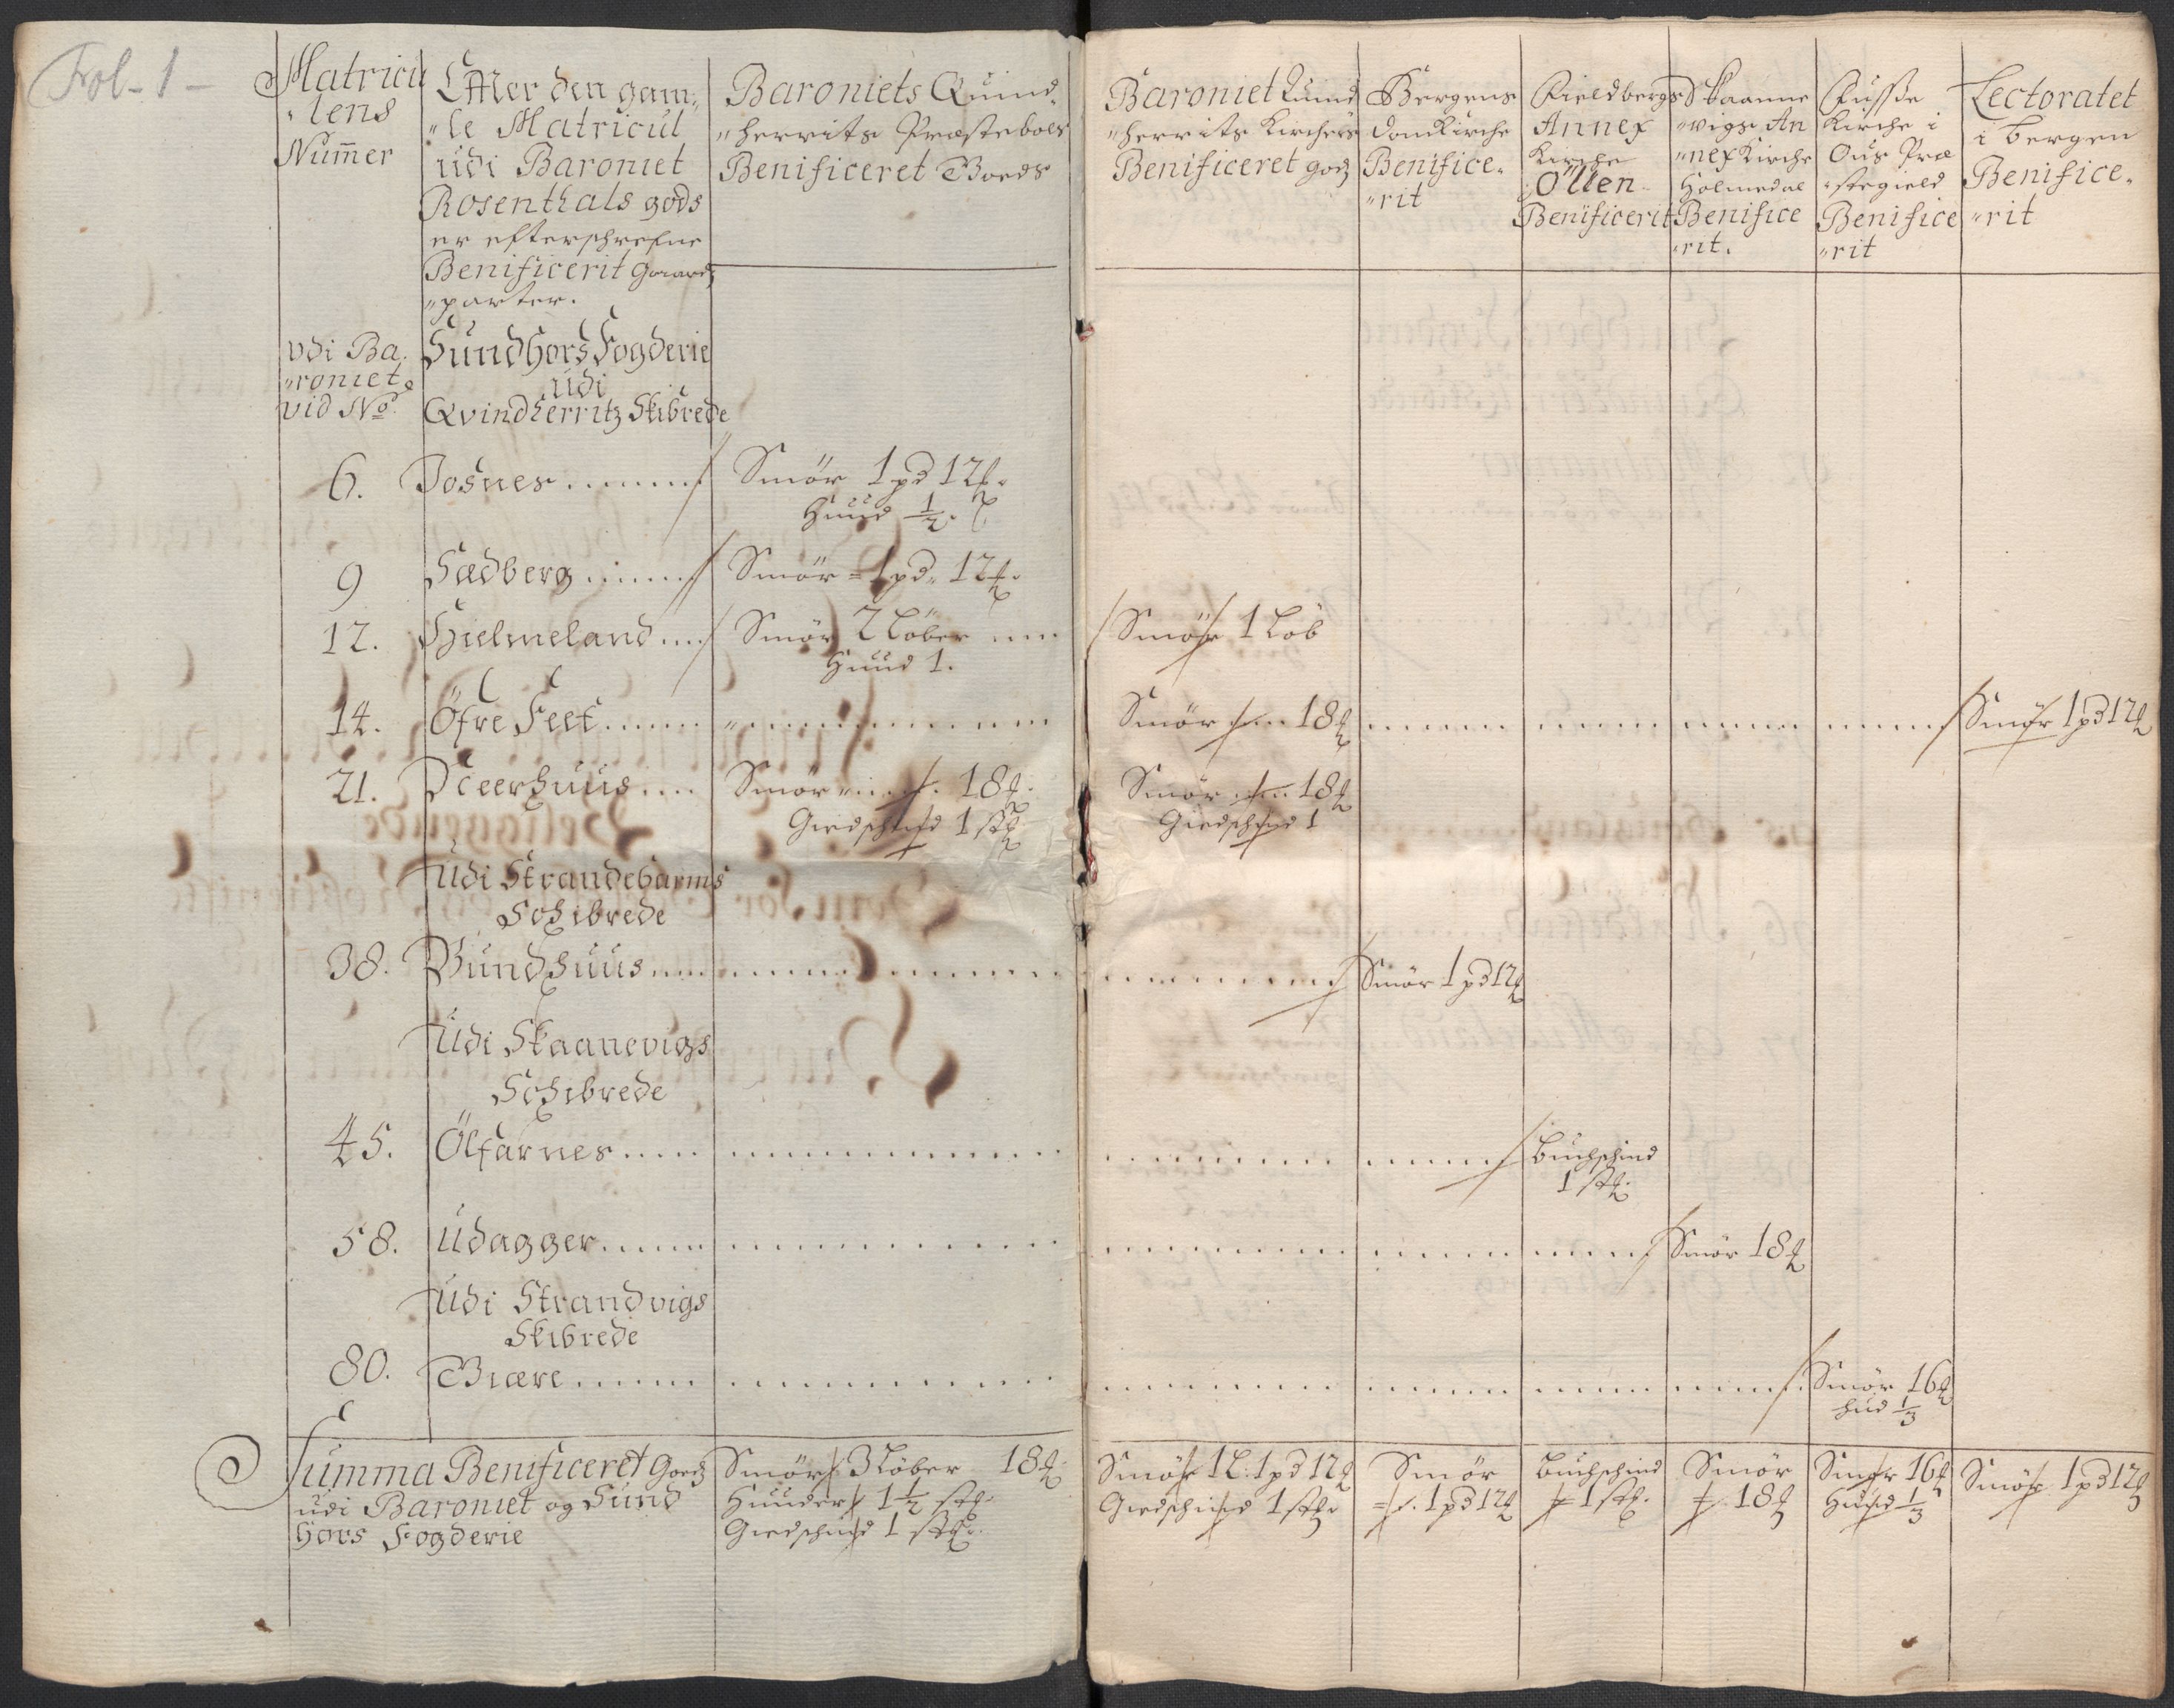 Fol- 1 -
Matricu
"lens
Num̅er
Efter den gam„
"le Matricul
udi Baroniet
Rosenthals gods
er efterschrefne
Benificerit
"parter.
Baroniets Quind„
"herrits Præstebols
Benificeret Goeds
Baroniet Quind
"herrits Kirches
Benificeret godz
Bergens
Domkirche
Benifice„
"rit
Fieldbergs
Annex
Kirche
Ölen
Benificerit
Skaanne
"vigs An
"nex Kirche
Holmedal
Benifice
"rit.
Fusse
Kirche i
Ous Præ
"stegield
Benifice
"rit
Lectoratet
i bergen
Benifice„
"rit
vdi Ba„
"roniet
vid No.
Sundhors Fogderie
udi
Qvindherritz Skibrede
6. Josnes ...... Smör 1 pd 12 ℔.
Huud ½.
9 Sædberg ...... Smör - 1 pd. 12 ℔.
12. Hielmeland ... Smör 2 Löber ... Smör 1 Löb
Huud 1.
14. Öfre Feet ...... Smör ... 18 ℔ ...... Smör 1 pd 12 ℔
21. .... Smör .... 18 ℔. Smör ... 18 ℔
Giedschind 1 stk. Giedschind 1
Udi Strandebarms
Schibrede
38. Bundhuus ...... Smör 1 pd 12 ℔
Udi Skaanevigs
Schibrede
45. Ölfarnes ...... buchschind
1 stk.
58. Udagger ...... Smör 18 ℔
Udi Strandvigs
Skibrede
80. Giære ...... Smör 16 ℔
hud ⅓
Summa Benificeret Goedz
udi Baroniet og Sund
Hors Fogderie
Smör 3 Löber 18 ℔.
Huuder 1½ stk.
Giedschind 1 stk.
Smör 1 L. 1 pd 12 ℔
Giedschind 1 stk.
Smör
1 pd 12 ℔
buchschind
1 stk.
Smör
18 ℔
Smör 16 ℔
Huud ⅓
Smör 1 pd 12 ℔